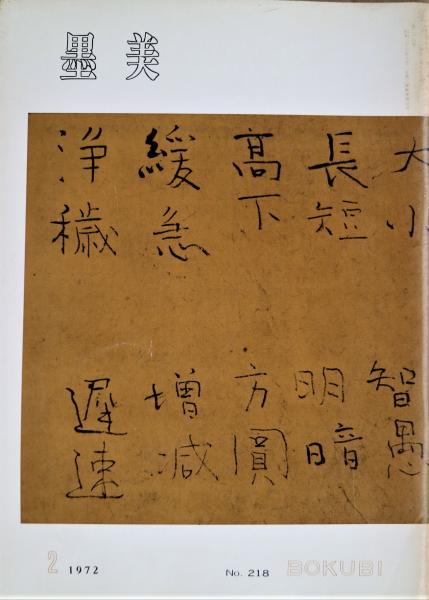 墨美
大小
長短
高下
緩急
浄穢
智愚
明暗
方圓
増減
遲速
2 1972
No. 218
BOKUBI